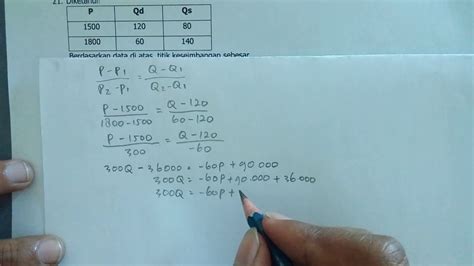 21. Diketahui:
P Qd Qs
1500 120 80
1800 60 140
Berdasarkan data di atas, titik keseimbangan sebesar
P-P1 / P2-P1 = Q-Q1 / Q2-Q1
P-1500 / 1800-1500 = Q-120 / 60-120
P-1500 / 300 = Q-120 / -60
300Q - 36000 = -60P + 90.000
300Q = -60P + 90.000 + 36.000
300Q = -60P +